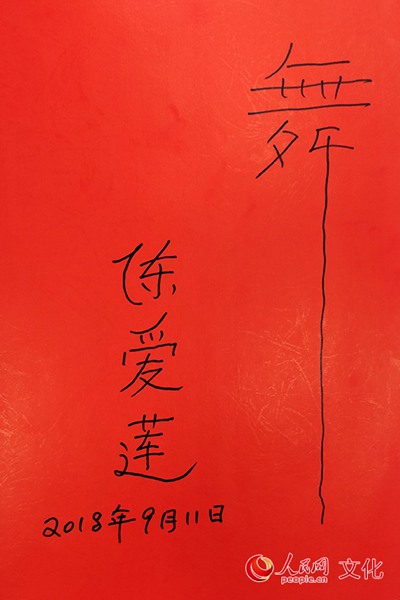 舞
陈爱莲
2018年9月11日
人民网 文化
people.cn